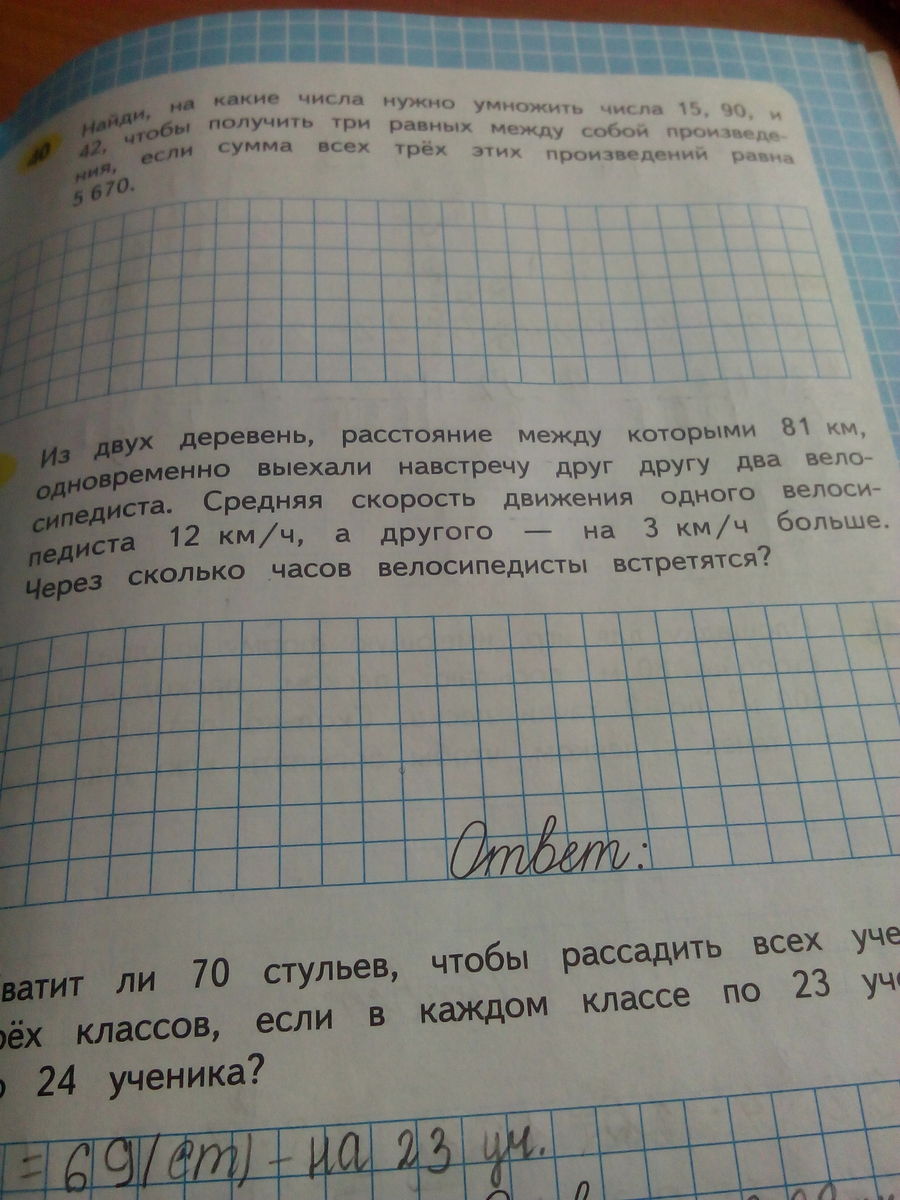 40
Найди, на какие числа нужно умножить числа 15, 90, и
42, чтобы получить три равных между собой произведе-
ния, если сумма всех трёх этих произведений равна
5 670.
Из двух деревень, расстояние между которыми 81 км,
одновременно выехали навстречу друг другу два вело-
сипедиста. Средняя скорость движения одного велоси-
педиста 12 км/ч, а другого — на 3 км/ч больше.
Через сколько часов велосипедисты встретятся?
Ответ:
ватит ли 70 стульев, чтобы рассадить всех уче
рёх классов, если в каждом классе по 23 уче
о 24 ученика?
= 69 (ст) - на 23 уч.